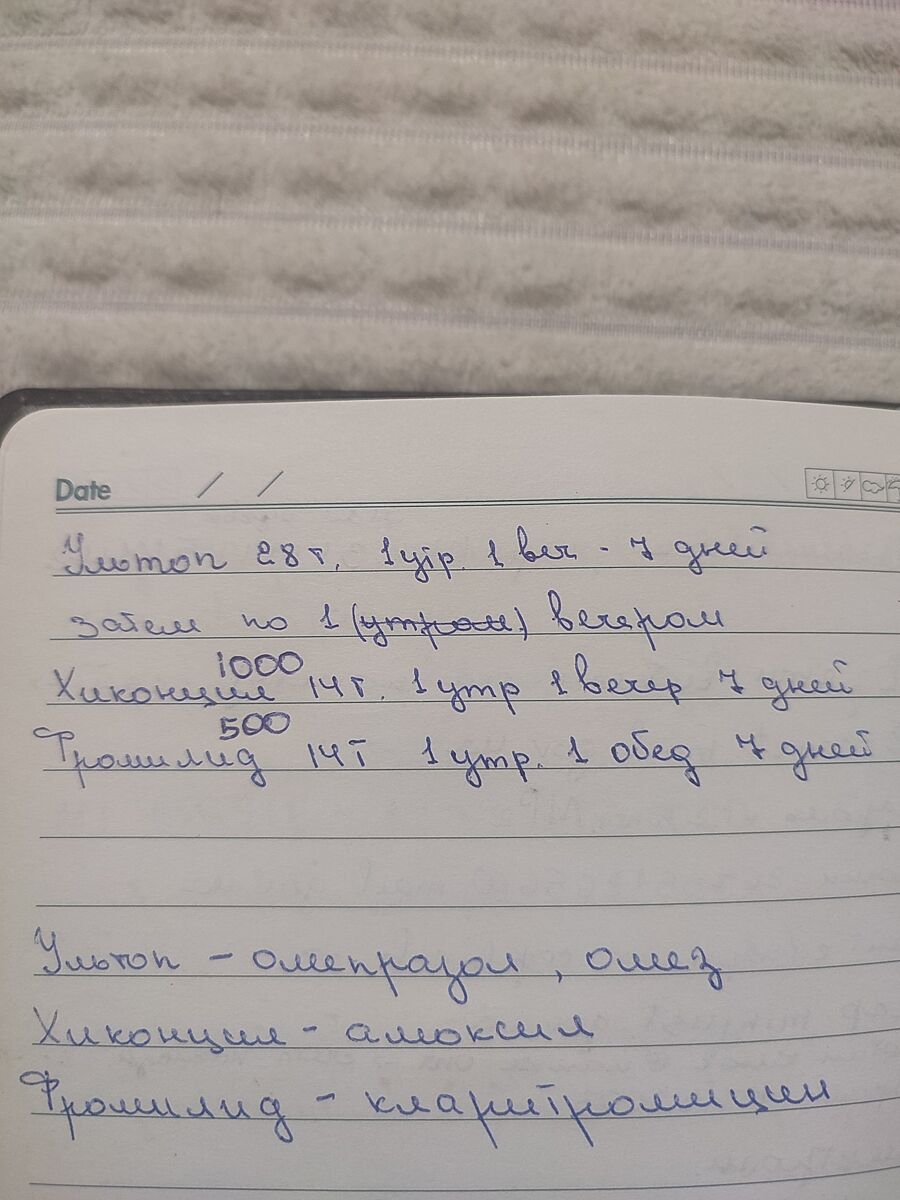 Date / /
Ультоп 28т. 1утр. 1 веч - 7 дней
затем по 1 (утром) вечером
1000
Хиконцил 14т. 1утр 1вечер 7 дней
500
Фромилид 14т 1 утр. 1 обед 7 дней
Ультоп - омепразол, омез
Хиконцил - амоксил
Фромилид - кларитромицин